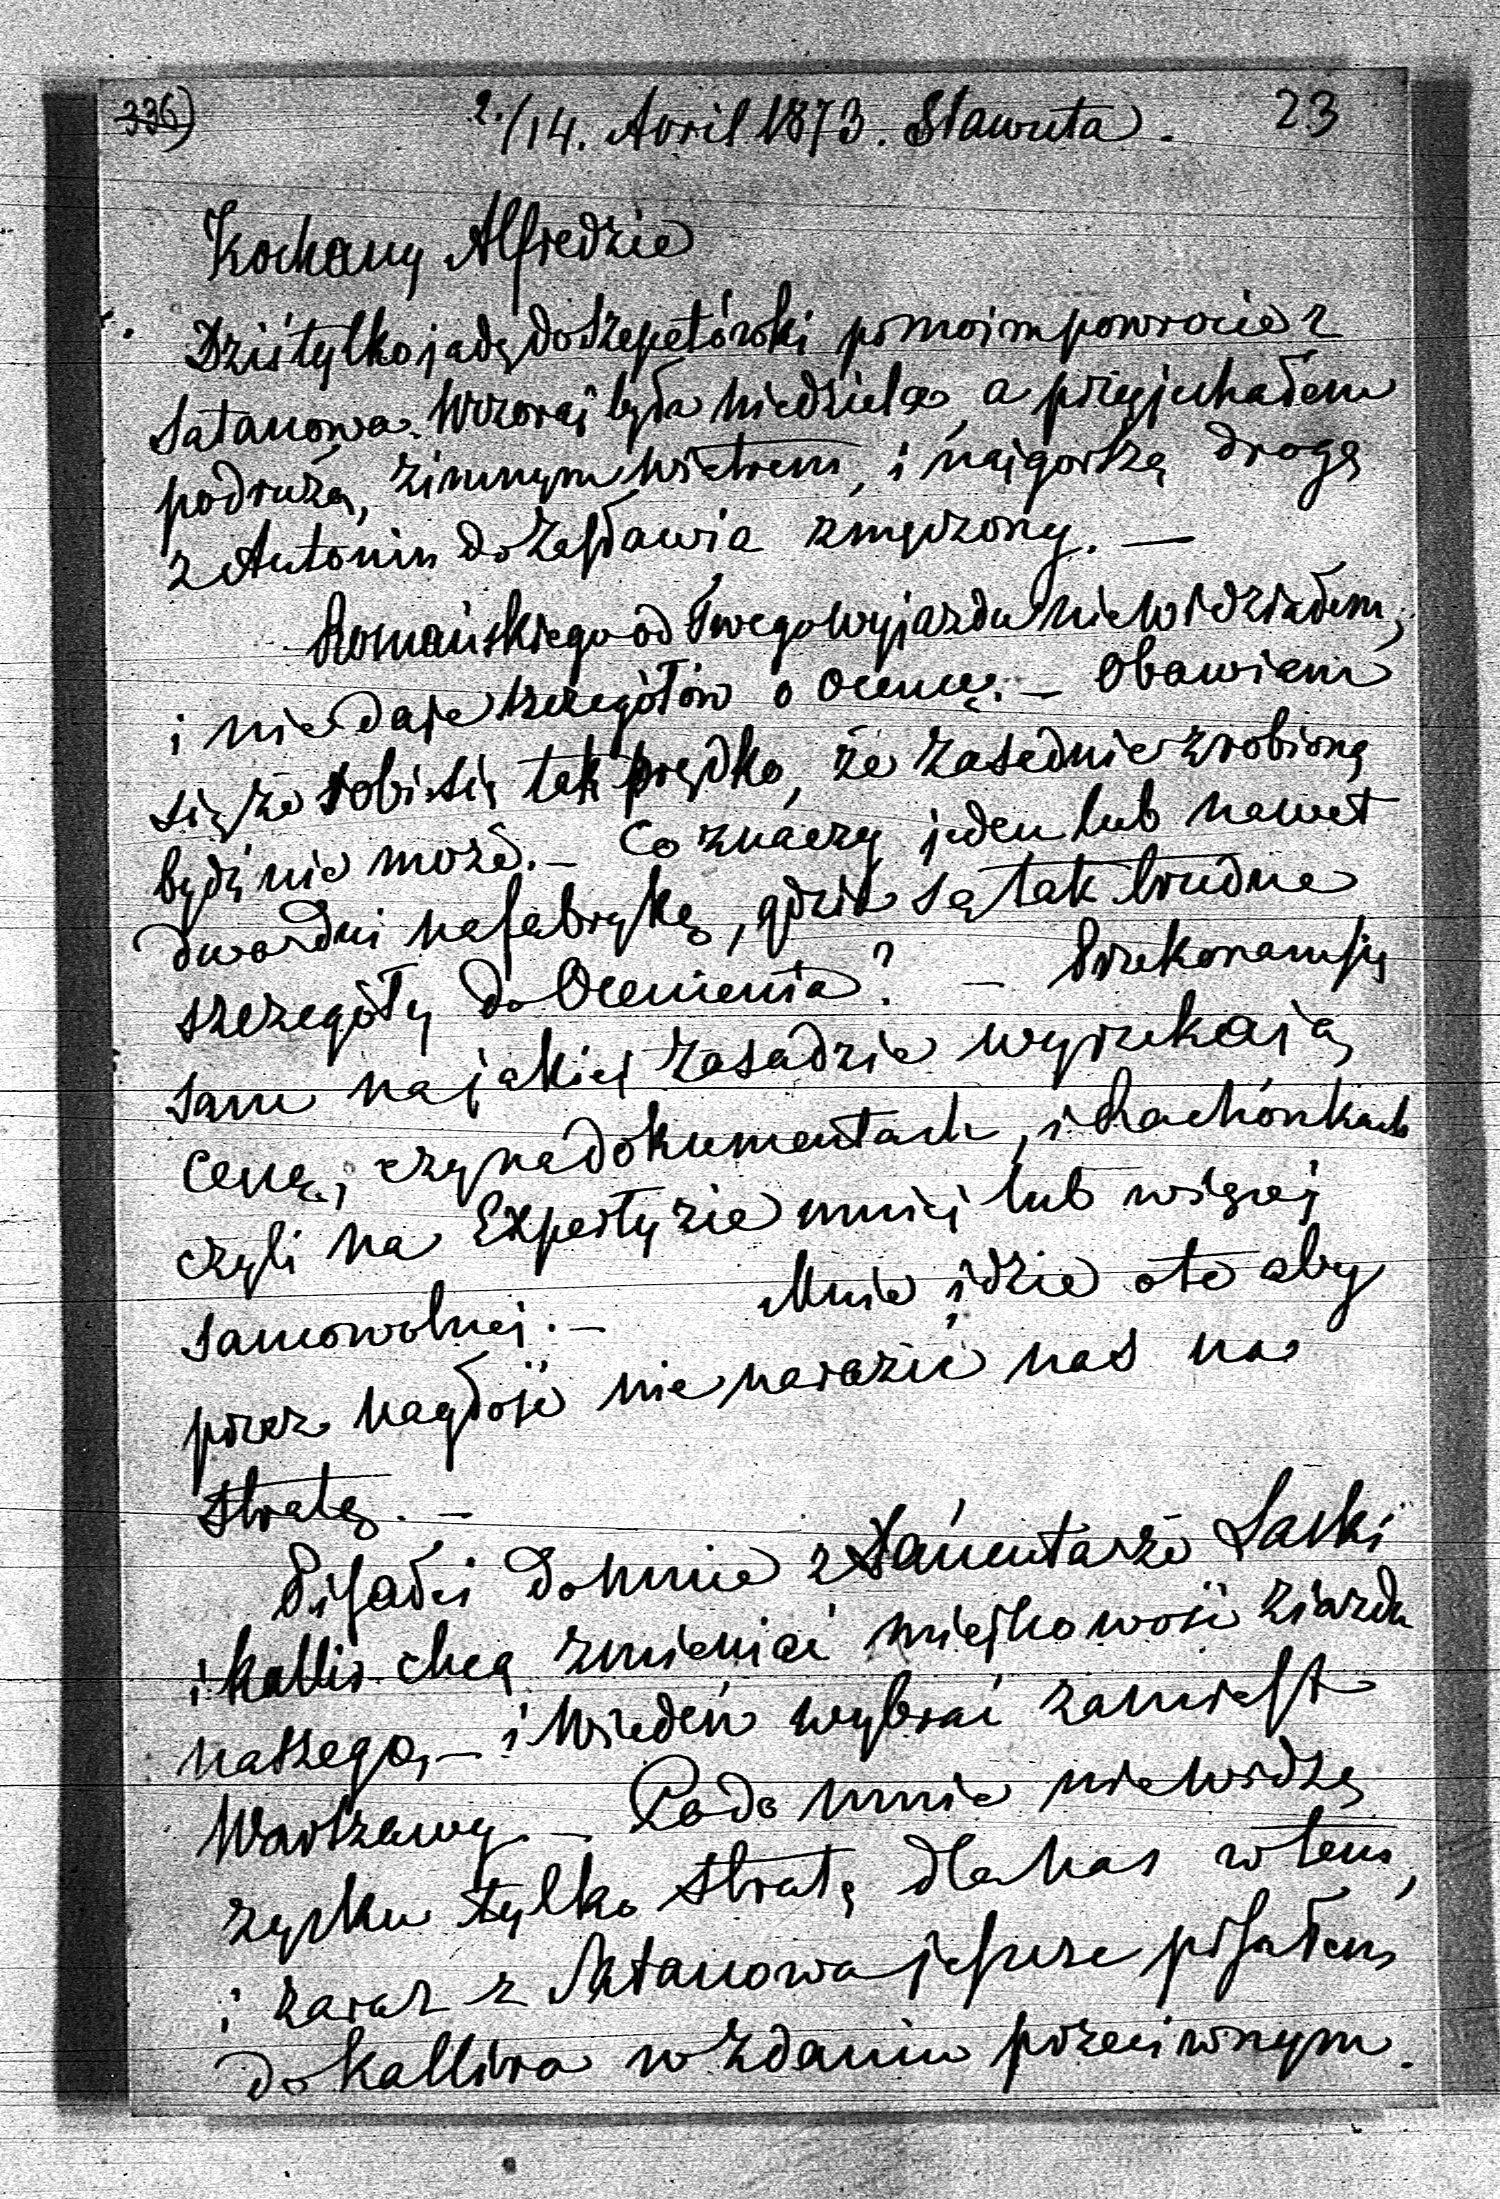 336) 2./14. Avril 1873. Sławuta. 23
Kochany Alfredzie
Dziś tylko jadę do Szepetówki po moim powrocie z
Satanowa. Wczoraj była niedziela, a przyjechałem
podrużą, zimnym wiatrem, i najgorszą drogą
z Antonin do Zasławia zmęczony. —
Romańskiego od Twego wyjazdu nie widziałem,
i nie daje szczegółów o ocenę. — Obawiam
się że robi się tak prędko, że zasadnie zrobioną
bydź nie może. — Co znaczy jeden lub nawet
dwa dni na fabrykę, gdzie są tak trudne
szczegóły do Ocenienia? — Przekonam się
sam na jakiej zasadzie wyrzekają
cenę, czy na dokumentach, i Rachónkach
czyli na Expertyzie mniej lub więcej
samowolnej. — Mnie idzie oto aby
przez nagłość nie narazić nas na
stratę. —
Pisałeś do mnie że Sanguszko Laski
i Kallir chcą zmieniać miejscowość zjazdu
naszego, — i Wiedeń wybrać zamiast
Warszawy. — Co do mnie nie widzę
zysku tylko stratę dla nas w tem,
i zaraz z Satanowa jeszcze pisałem
do Kallira w zdaniu przeciwnym.